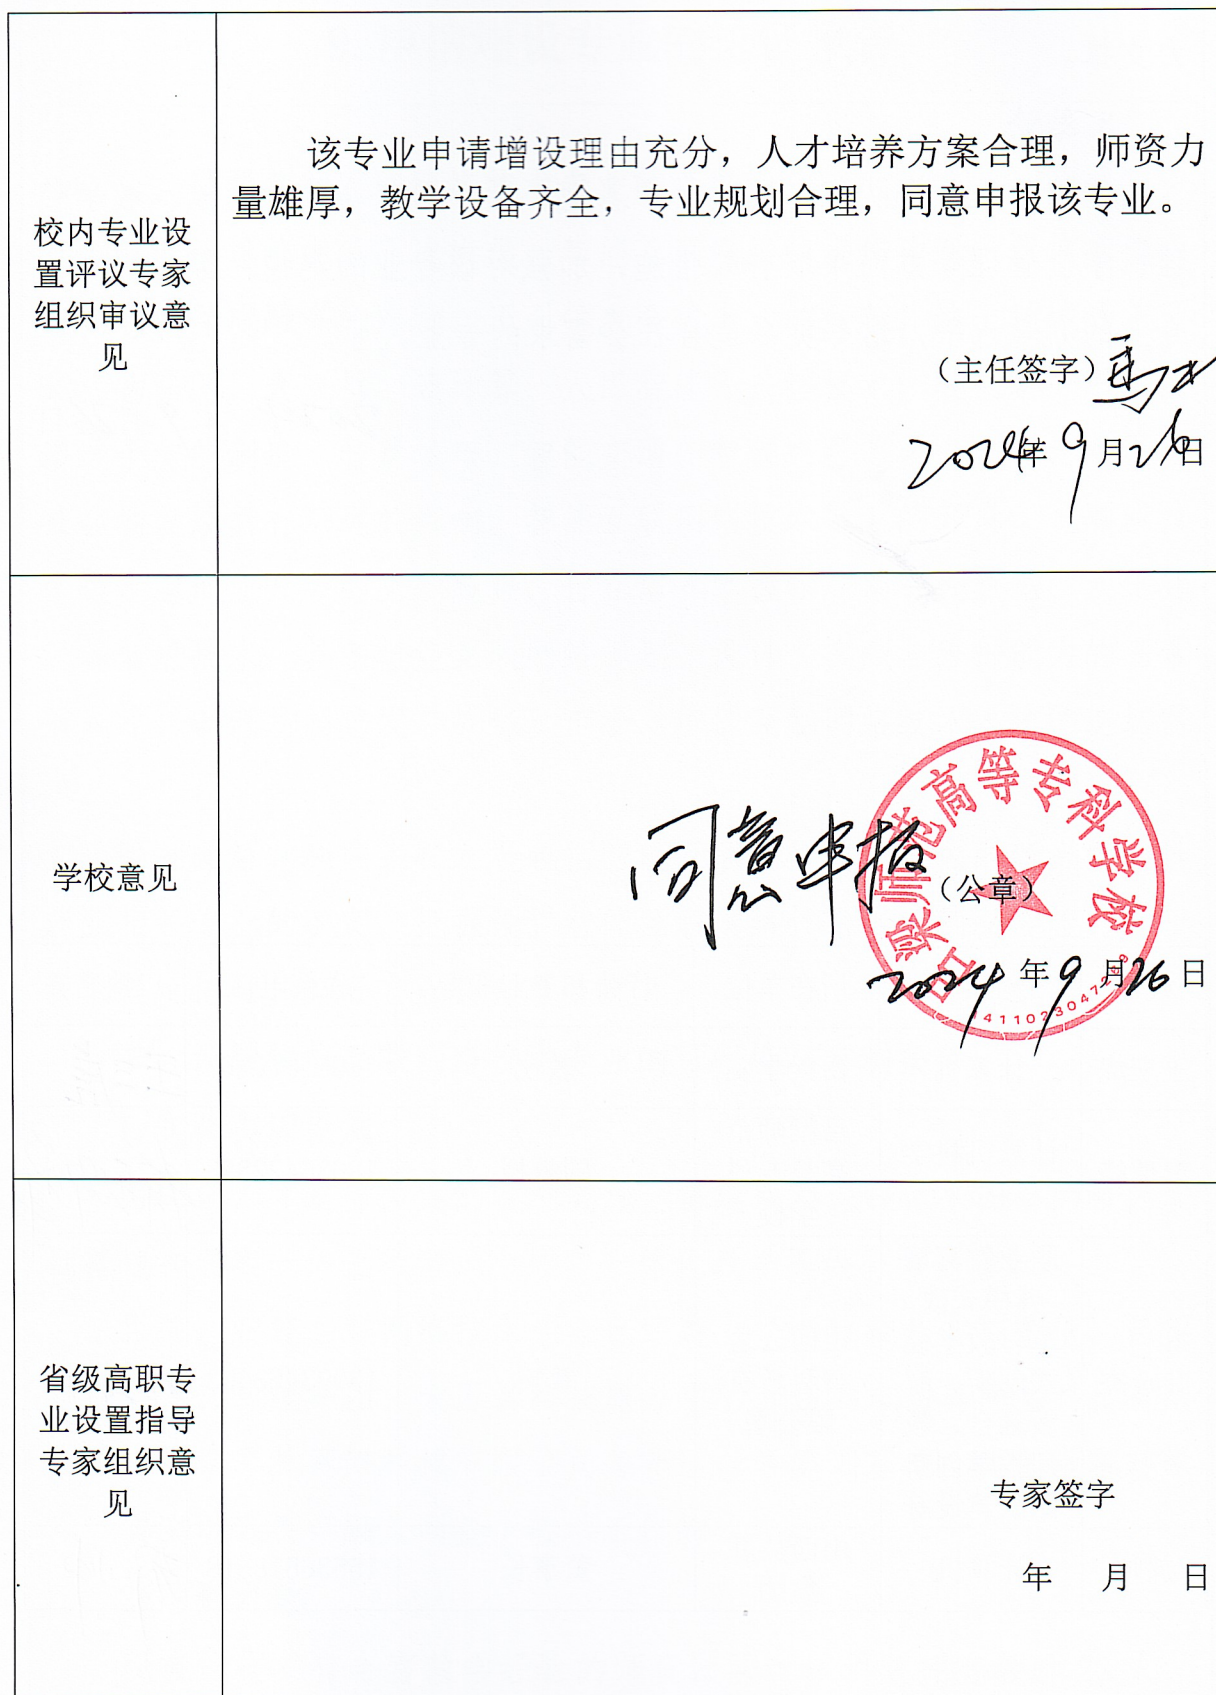 校内专业设
置评议专家
组织审议意
见
该专业申请增设理由充分，人才培养方案合理，师资力
量雄厚，教学设备齐全，专业规划合理，同意申报该专业。
（主任签字）馬
2024年9月26日
学校意见
同意申报（公章）
吕梁师范高等专科学校
2024年9月26日
省级高职专
业设置指导
专家组织意
见
专家签字
年 月 日